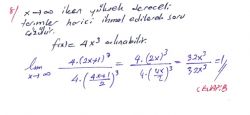 8/ x→∞ iken yüksek dereceli
terimler harici ihmal edilerek soru
çözülür.
f(x)= 4x³ alınabilir.
lim x→∞ 4.(2x+1)³ / 4.((4x+1)/2)³ = 4.(2x)³ / 4.(4x/2)³ = 32x³ / 32x³ = 1//